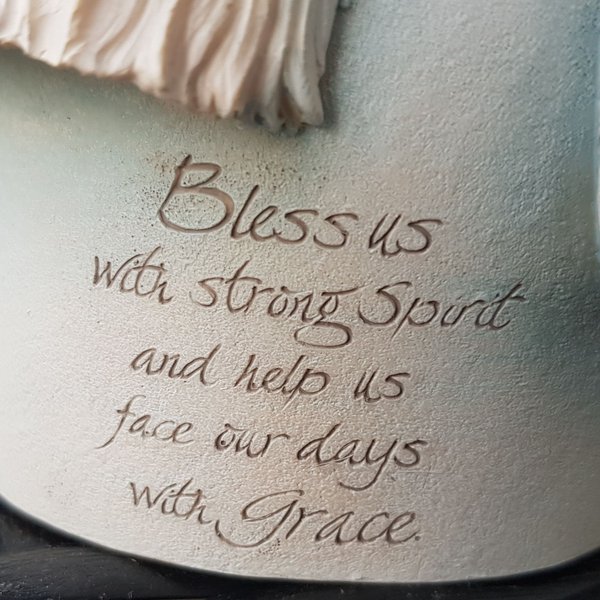 Bless us
with strong Spirit
and help us
face our days
with Grace.